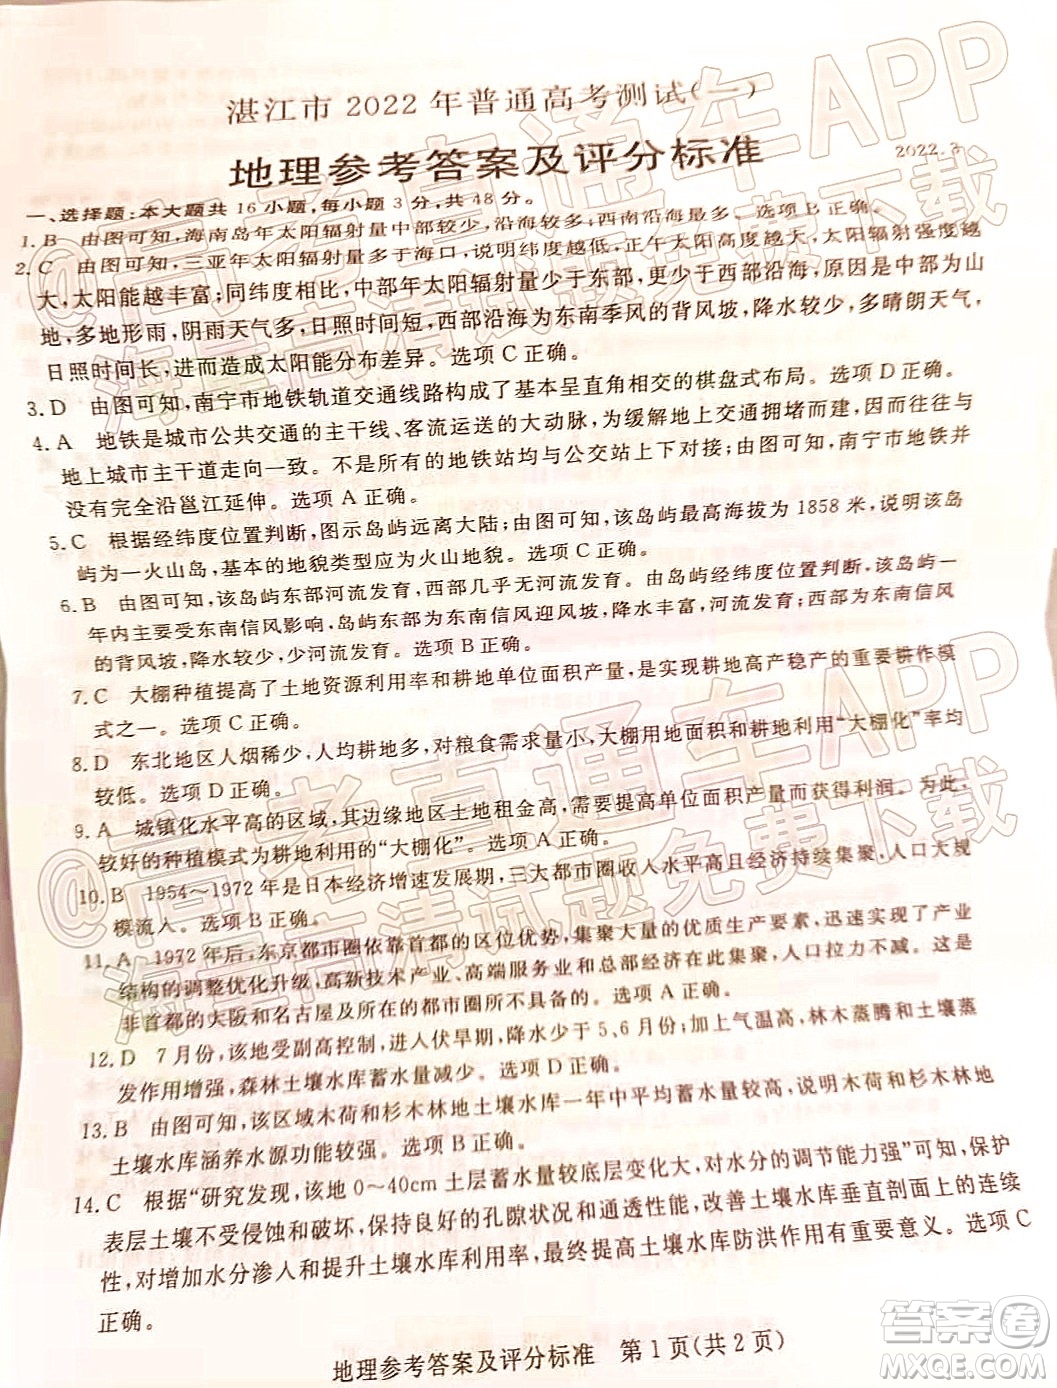 湛江市 2022 年普通高考测试(一)
地理参考答案及评分标准
2022.3
一、选择题:本大题共 16 小题,每小题 3 分,共 48 分。
1. B 由图可知,海南岛年太阳辐射量中部较少,沿海较多,西南沿海最多。选项 B 正确。
2. C 由图可知,三亚年太阳辐射量多于海口,说明纬度越低,正午太阳高度越大,太阳辐射强度越
大,太阳能越丰富;同纬度相比,中部年太阳辐射量少于东部,更少于西部沿海,原因是中部为山
地,多地形雨,阴雨天气多,日照时间短,西部沿海为东南季风的背风坡,降水较少,多晴朗天气,
日照时间长,进而造成太阳能分布差异。选项 C 正确。
3. D 由图可知,南宁市地铁轨道交通线路构成了基本呈直角相交的棋盘式布局。选项 D 正确。
4. A 地铁是城市公共交通的主干线、客流运送的大动脉,为缓解地上交通拥堵而建,走向大多与
地上城市主干道走向一致。不是所有的地铁站均与公交站上下对接;由图可知,南宁市地铁并
没有完全沿邕江延伸。选项 A 正确。
5. C 根据经纬度位置判断,图示岛屿远离大陆;由图可知,该岛屿最高海拔为 1858 米,说明该岛
屿为一火山岛,基本的地貌类型应为火山地貌。选项 C 正确。
6. B 由图可知,该岛屿东部河流发育,西部几乎无河流发育。由岛屿经纬度位置判断,该岛屿一
年内主要受东南信风影响,岛屿东部为东南信风迎风坡,降水丰富,河流发育;西部为东南信风
的背风坡,降水较少,少河流发育。选项 B 正确。
7. C 大棚种植提高了土地资源利用率和耕地单位面积产量,是实现耕地高产稳产的重要耕作模
式之一。选项 C 正确。
8. D 东北地区人烟稀少,人均耕地多,对粮食需求量小,大棚用地面积和耕地利用“大棚化”率均
较低。选项 D 正确。
9. A 城镇化水平高的区域,其边缘地区土地租金高,需要提高单位面积所获得的利润。为此,
较好的种植模式为耕地利用的“大棚化”。选项 A 正确。
10. B 1954~1972 年是日本经济增速发展期,三大都市圈收入水平高且经济持续集聚,人口大规
模流入。选项 B 正确。
11. A 1972 年后,东京都市圈依靠首都的区位优势,集聚大量的优质生产要素,迅速实现了产业
结构的调整优化升级,高新技术产业、高端服务业和总部经济在此集聚,人口拉力不减。这是
非首都的大阪和名古屋及所在的都市圈所不具备的。选项 A 正确。
12. D 7 月份,该地受副高控制,进入伏旱期,降水少于 5、6 月份;加上气温高,林木蒸腾和土壤蒸
发作用增强,森林土壤水库蓄水量减少。选项 D 正确。
13. B 由图可知,该区域木荷和杉木林地土壤水库一年中平均蓄水量较高,说明木荷和杉木林地
土壤水库涵养水源功能较强。选项 B 正确。
14. C 根据“研究发现,该地 0~40cm 土层蓄水量较底层变化大,对水分的调节能力强”可知,保护
表层土壤不受侵蚀和破坏,保持良好的孔隙状况和通透性能,改善土壤水库垂直剖面上的连续
性,对增加水分渗入和提升土壤水库利用率,最终提高土壤水库防洪作用有重要意义。选项 C
正确。
地理参考答案及评分标准 第 1 页(共 2 页)
@高考直通车APP
海量高清试题免费下载
@高考直通车APP
海量高清试题免费下载
答案圈
MXQE.COM